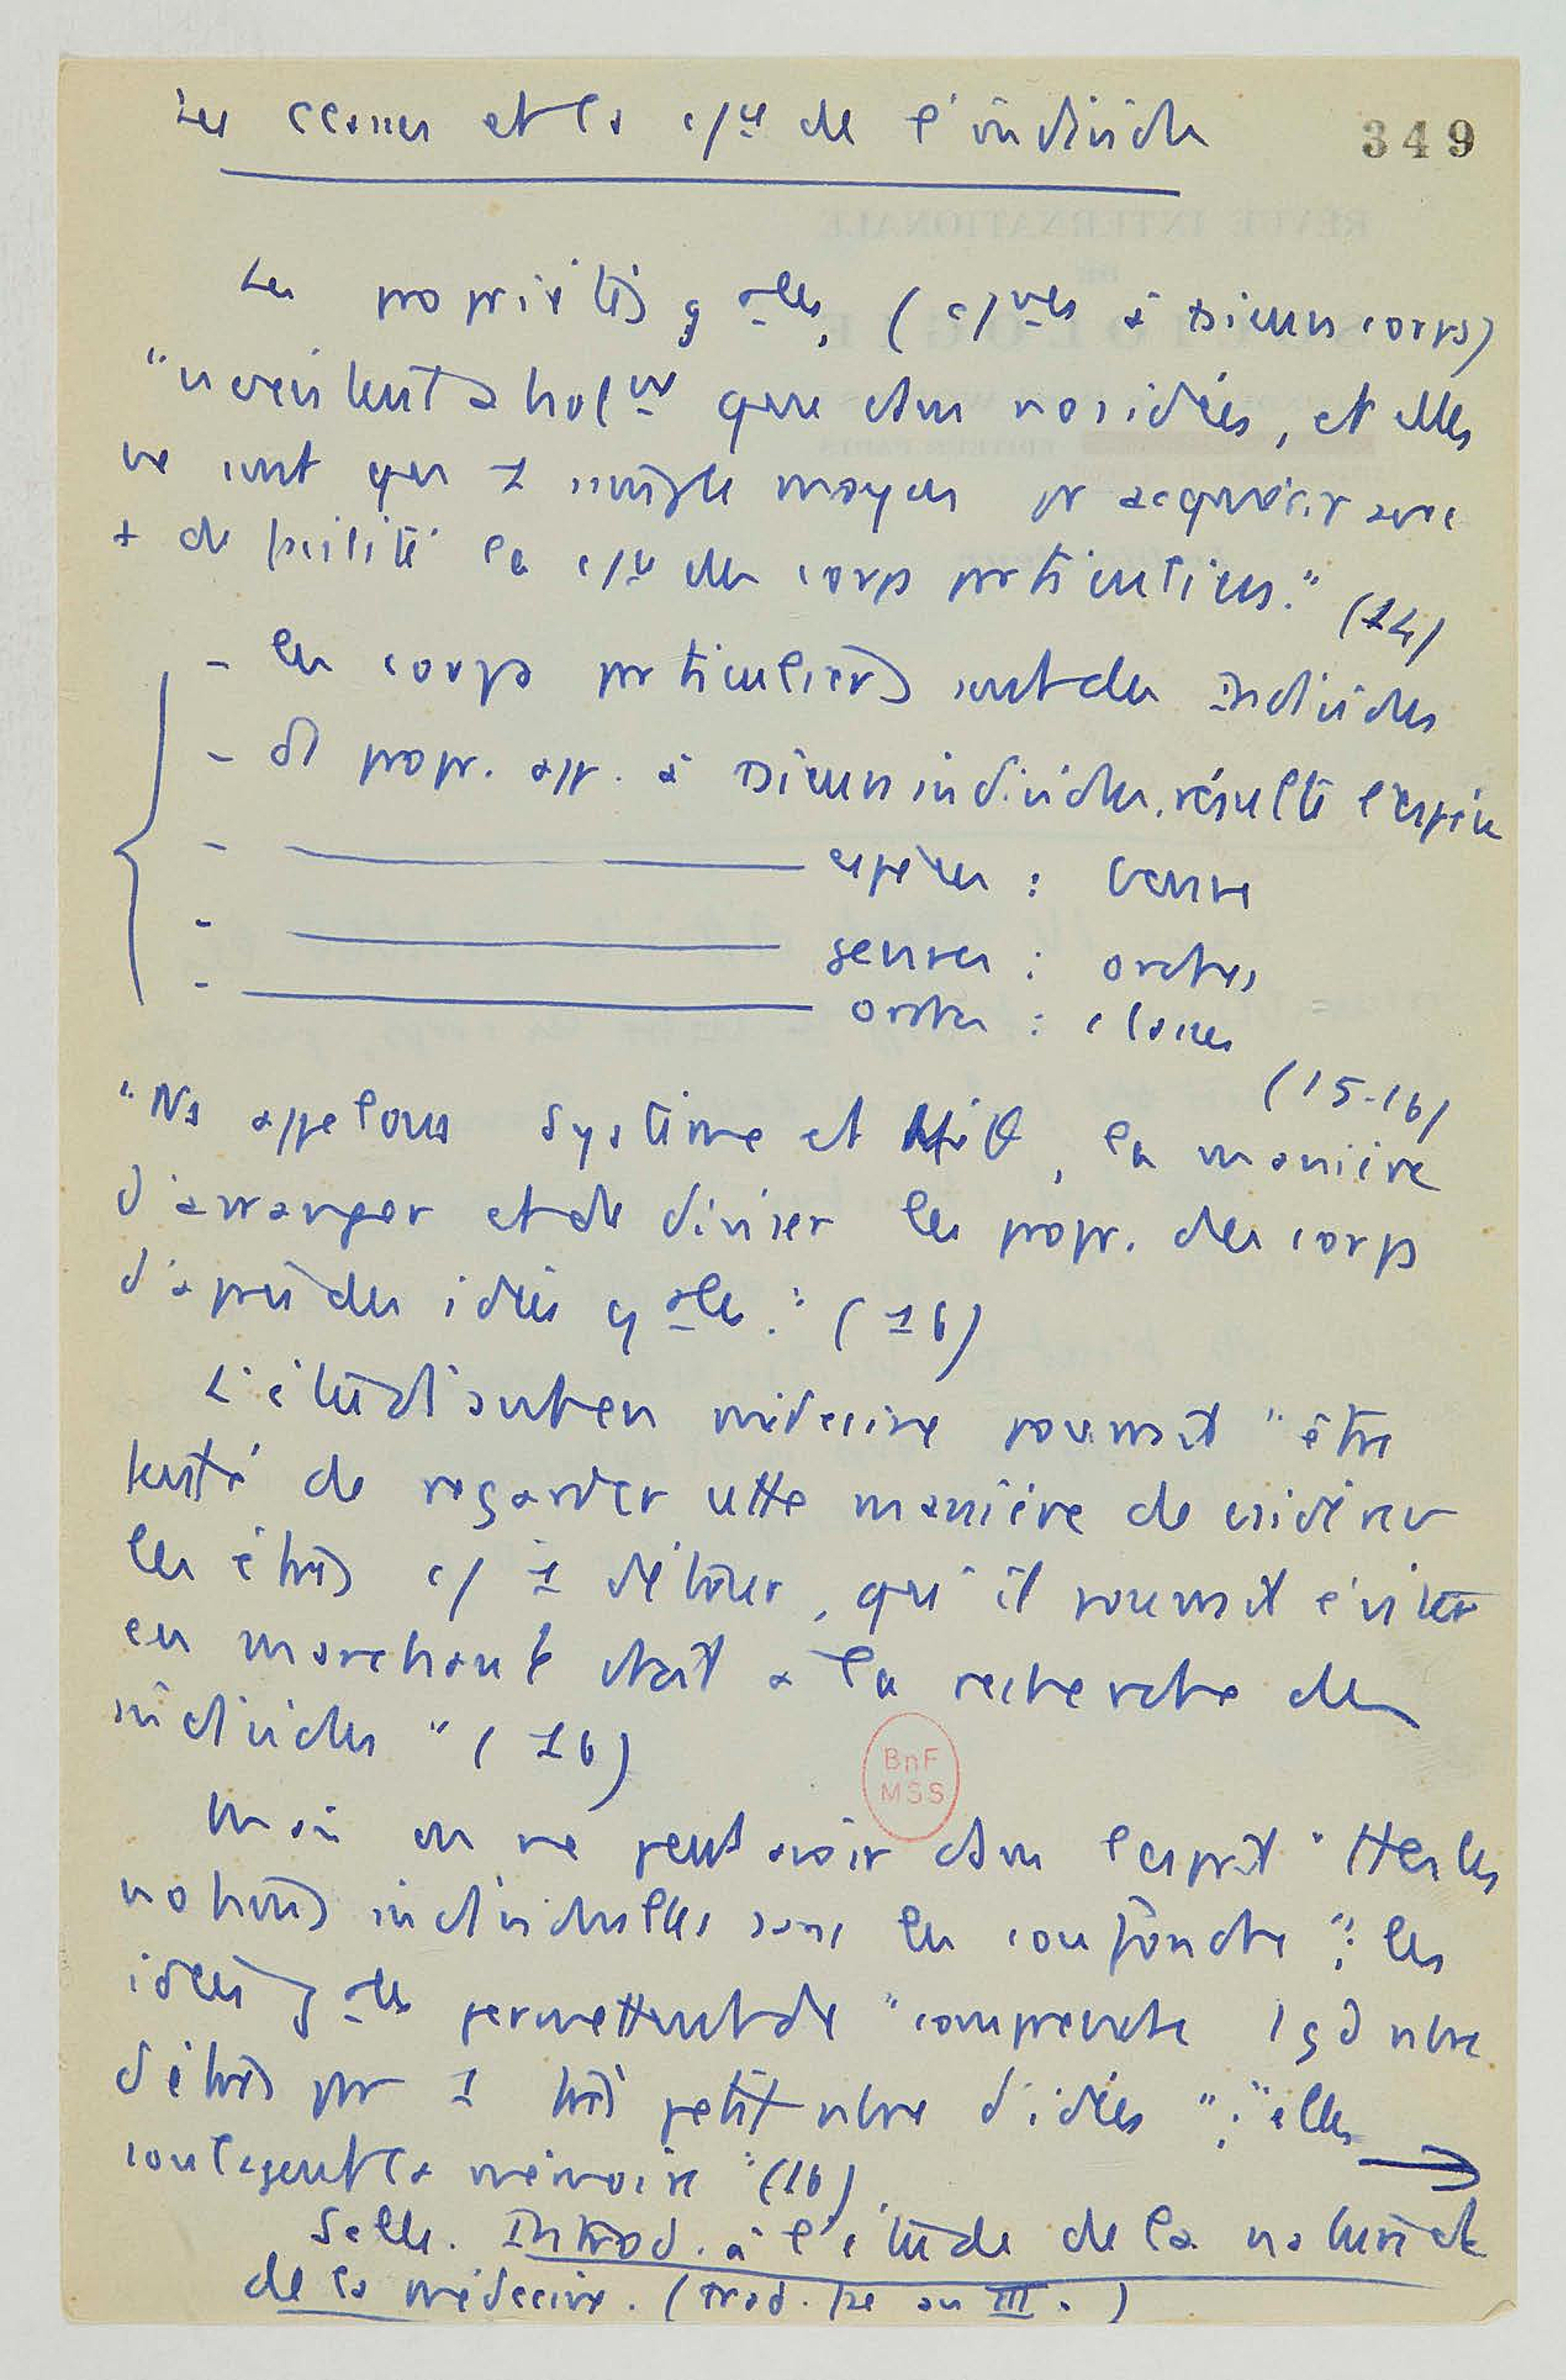 Les classes et la c/ce de l'individu
349
Les propriétés gales, (c/nes à plusieurs corps)
"n'existent abstrt que dans nos idées, et elles
ne sont que 1 simple moyen pr acquérir avec
+ de facilité la c/ce des corps particuliers." (14)
- les corps particuliers sont des individus
- de propr. app. à plusieurs individus, résulte l'espèce
- ——— espèces : genre
- ——— genres : ordres
- ——— ordres : classes
(15-16)
"Ns appelons système et , la manière
d'arranger et de diviser les propr. des corps
d'après des idées gales." (16)
L'étudiant en médecine pourrait "être
tenté de regarder cette manière de considérer
les êtres c/ 1 détour, qu'il pourrait éviter
en marchant droit à la recherche des
individus" (16)
Mais on ne peut avoir dans l'esprit "ttes les
notions individuelles sans les confondre"; les
idées gales permettent de "comprendre 1 gd nbre
d'êtres par 1 très petit nbre d'idées"; "elles →
soulagent la mémoire" (16).
Selle. Introd. à l'étude de la nature et
de la médecine. (trad. fse an III.)
BnF
MSS